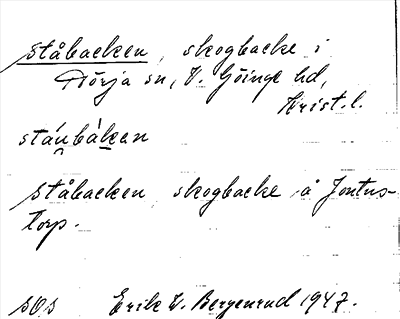 Ståbacken, skogbacke i
Nörja sn, V. Göinge hd,
Krist. l.
stáu̯bák̲en
Ståbacken, skogbacke å Jontus-
torp.
SOS Erik W. Bergenrud 1947.